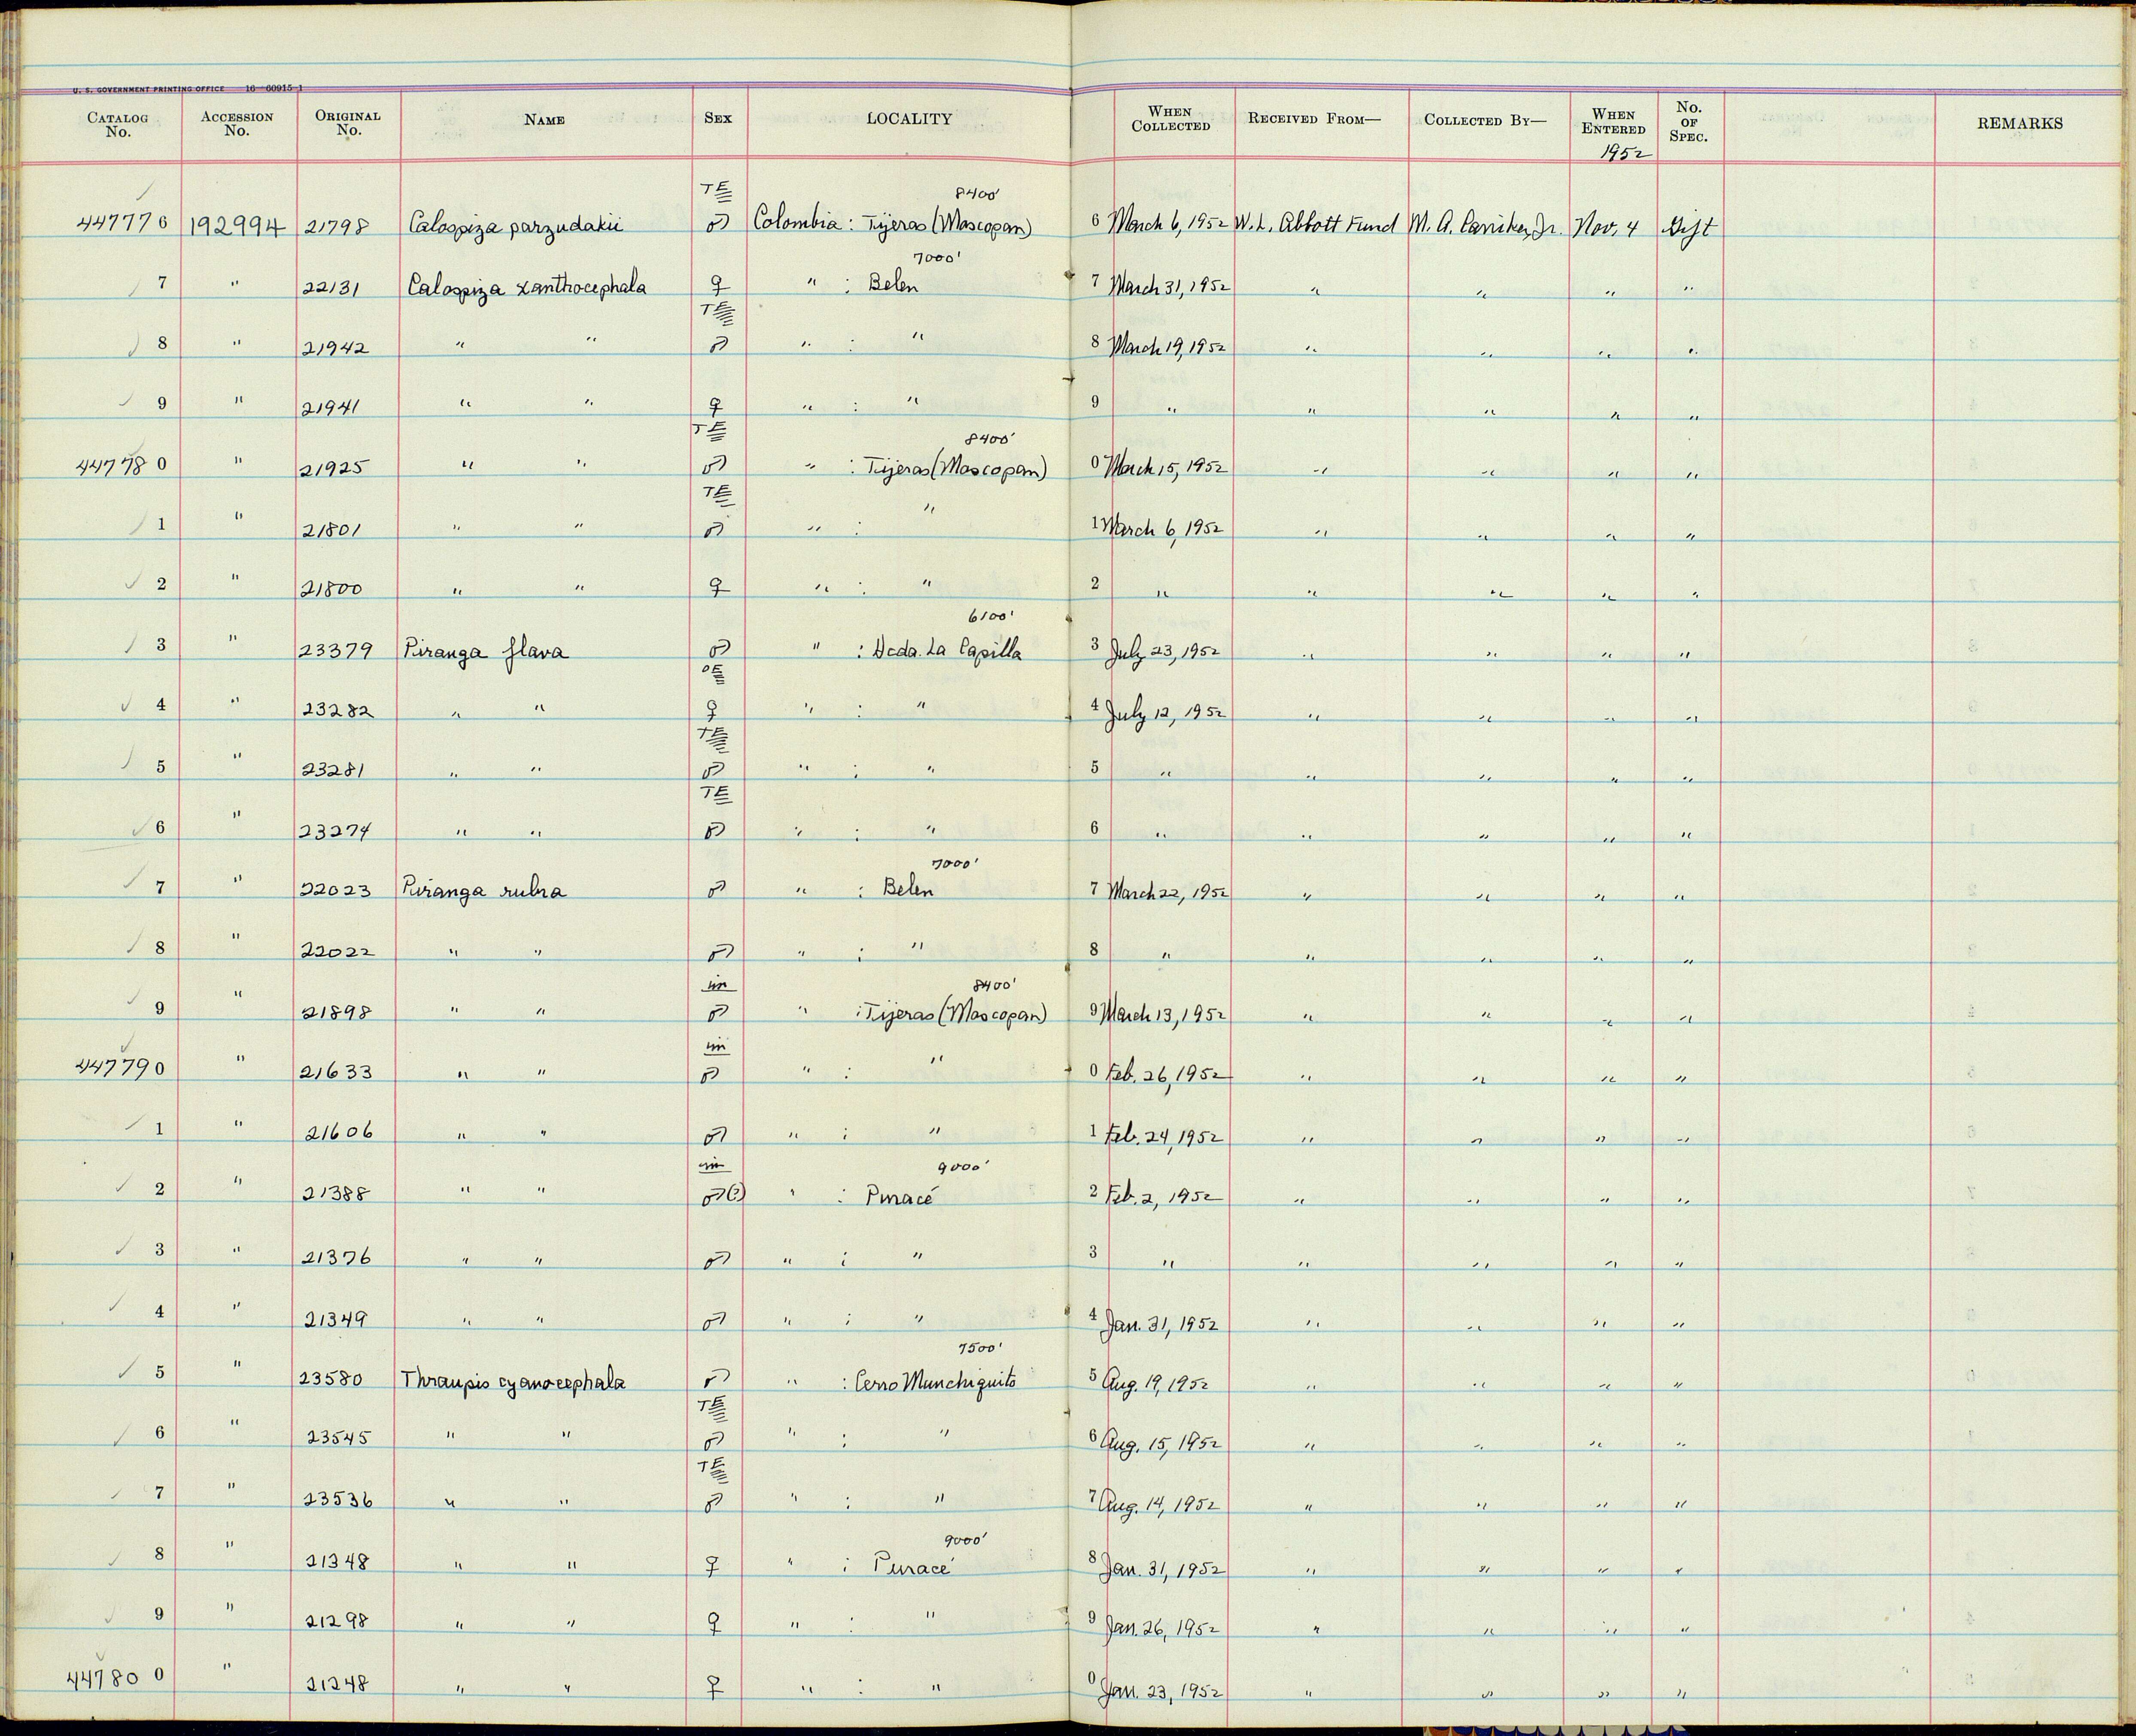 U. S. GOVERNMENT PRINTING OFFICE 16—60915-1
CATALOG No. ACCESSION No. ORIGINAL No. NAME SEX LOCALITY WHEN COLLECTED RECEIVED FROM— COLLECTED BY— WHEN ENTERED No. OF SPEC. REMARKS
1952
TE 8400'
447776 192994 21798 Calospiza parzudakii ♂ Colombia: Tijeras (Moscopan) 6 March 6, 1952 W. L. Abbott Fund M. A. Carriker, Jr. Nov. 4 Gift
7000'
7 " 22131 Calospiza xanthocephala ♀ " : Belen 7 March 31, 1952 " " " "
TE
8 " 21942 " " ♂ " : " 8 March 19, 1952 " " " "
9 " 21941 " " ♀ " : " 9 " " " " "
TE 8400'
447780 " 21925 " " ♂ " : Tijeras (Moscopan) 0 March 15, 1952 " " " "
TE
1 " 21801 " " ♂ " : " 1 March 6, 1952 " " " "
2 " 21800 " " ♀ " : " 2 " " " " "
6100'
3 " 23379 Piranga flava ♂ " : Hcda. La Capilla 3 July 23, 1952 " " " "
OE
4 " 23282 " " ♀ " : " 4 July 12, 1952 " " " "
TE
5 " 23281 " " ♂ " : " 5 " " " " "
TE
6 " 23274 " " ♂ " : " 6 " " " " "
7000'
7 " 22023 Piranga rubra ♂ " : Belen 7 March 22, 1952 " " " "
8 " 22022 " " ♂ " : " 8 " " " " "
im 8400'
9 " 21898 " " ♂ " : Tijeras (Moscopan) 9 March 13, 1952 " " " "
im
447790 " 21633 " " ♂ " : " 0 Feb. 26, 1952 " " " "
1 " 21606 " " ♂ " : " 1 Feb. 24, 1952 " " " "
im 9000'
2 " 21388 " " ♂(?) " : Puracé 2 Feb. 2, 1952 " " " "
3 " 21376 " " ♂ " : " 3 " " " " "
4 " 21349 " " ♂ " : " 4 Jan. 31, 1952 " " " "
7500'
5 " 23580 Thraupis cyanocephala ♂ " : Cerro Munchiquito 5 Aug. 19, 1952 " " " "
TE
6 " 23545 " " ♂ " : " 6 Aug. 15, 1952 " " " "
TE
7 " 23536 " " ♂ " : " 7 Aug. 14, 1952 " " " "
9000'
8 " 21348 " " ♀ " : Puracé 8 Jan. 31, 1952 " " " "
9 " 21298 " " ♀ " : " 9 Jan. 26, 1952 " " " "
447800 " 21248 " " ♀ " : " 0 Jan. 23, 1952 " " " "